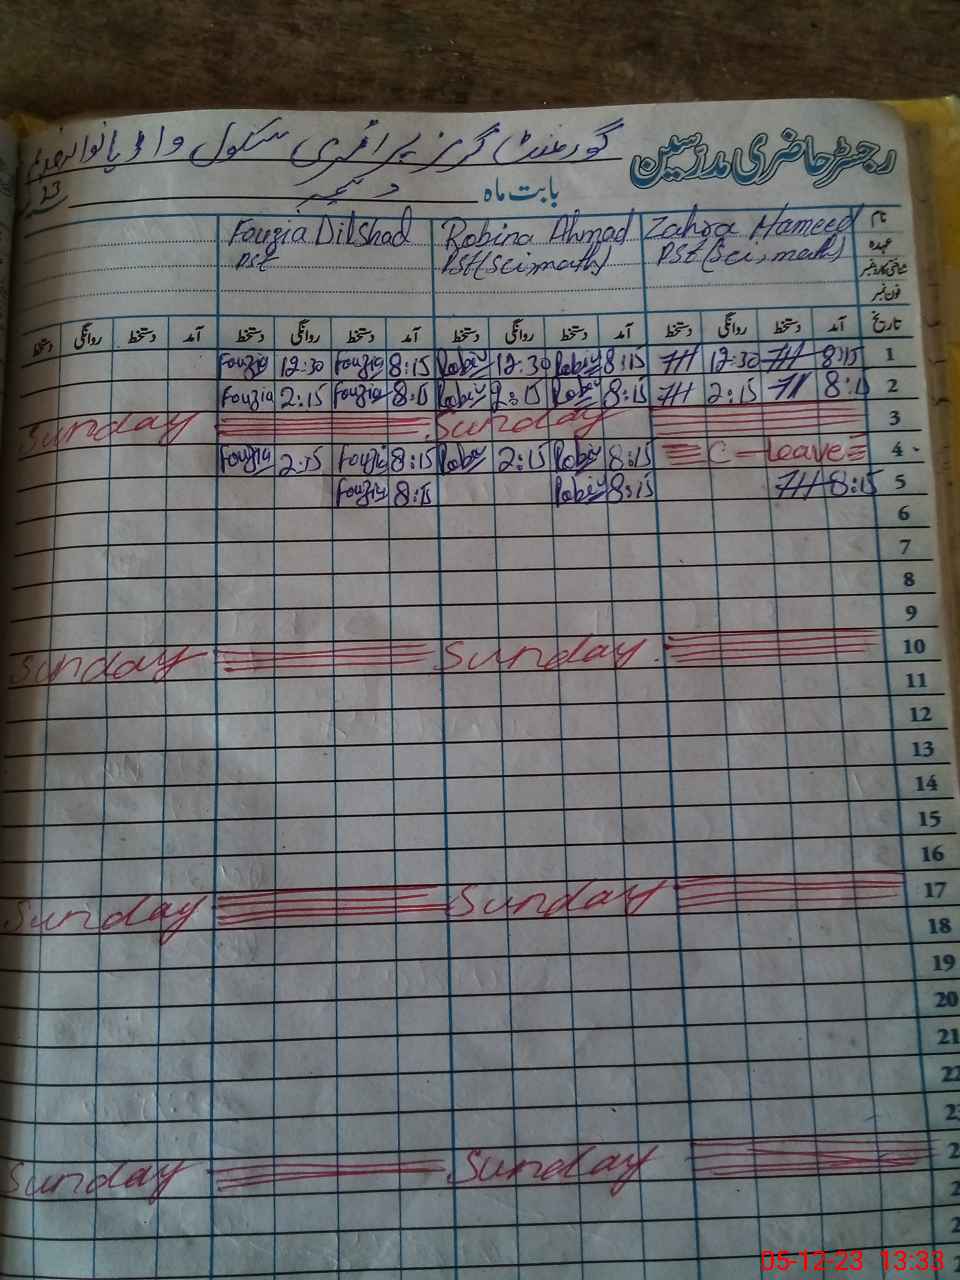 رجسٹر حاضری مدرسین گورنمنٹ گرلز پرائمری سکول
بابت ماہ دسمبر 23
نام Zahra Hameed Robina Ahmad Fouzia Dilshad
عہدہ PST (Sci, math) PST (Sci, math) PST
شناختی کارڈ نمبر
فون نمبر
تاریخ آمد دستخط روانگی دستخط آمد دستخط روانگی دستخط آمد دستخط روانگی دستخط آمد دستخط روانگی دستخط
1 8:15 ZH 12:30 ZH 8:15 Robi 12:30 Robi 8:15 Fouzia 12:30 Fouzia
2 8:15 ZH 2:15 ZH 8:15 Robi 2:15 Robi 8:15 Fouzia 2:15 Fouzia
3 Sunday Sunday
4 C-leave 8:15 Robi 2:15 Robi 8:15 Fouzia 2:15 Fouzia
5 8:15 ZH 8:15 Robi 8:15 Fouzia
6
7
8
9
10 Sunday Sunday
11
12
13
14
15
16
17 Sunday Sunday
18
19
20
21
22
Sunday Sunday
05-12-23 13:33